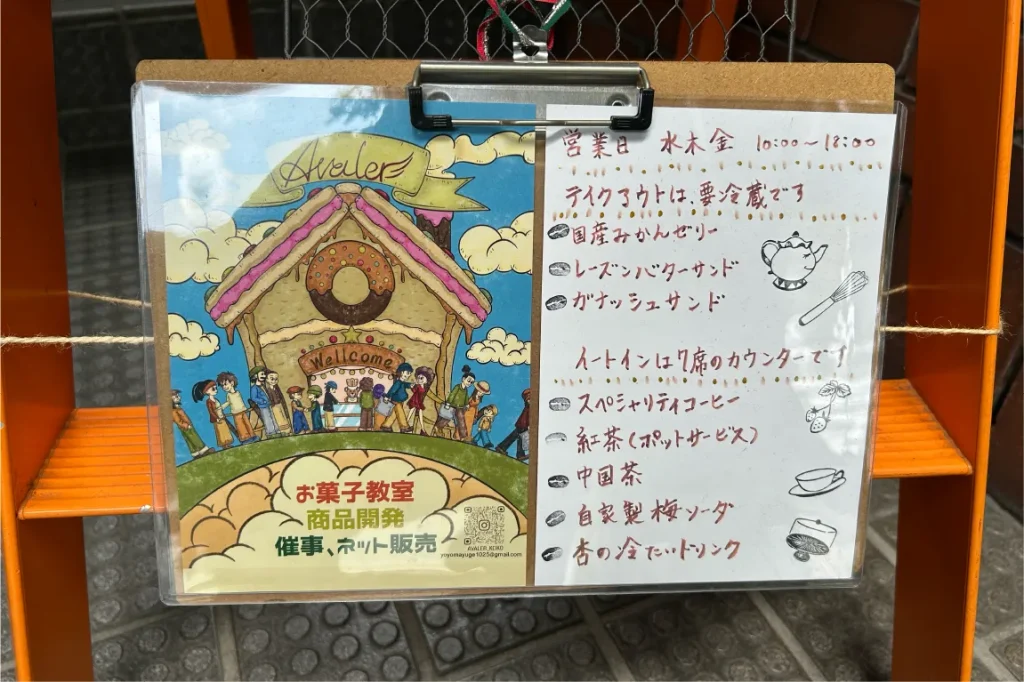 Avaler
Wellcome
お菓子教室
商品開発
催事、ネット販売
AVALER_KOKO
yoyomayuge1025@gmail.com
営業日 水木金 10:00〜18:00
テイクアウトは、要冷蔵です
国産みかんゼリー
レーズンバターサンド
ガナッシュサンド
イートインは7席のカウンターです
スペシャリティコーヒー
紅茶(ポットサービス)
中国茶
自家製梅ソーダ
杏の冷たいドリンク